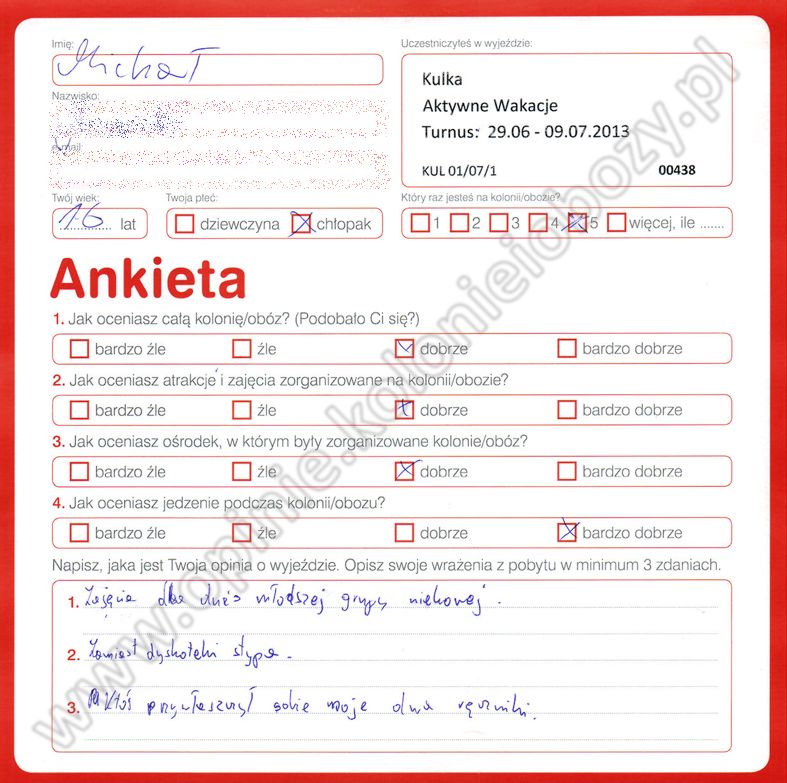 Imię:
Uczestniczyłeś w wyjeździe:
Michał
Kulka
Aktywne Wakacje
Turnus: 29.06 - 09.07.2013
KUL 01/07/1 00438
Nazwisko:
e-mail:
Twój wiek: Twoja płeć: Który raz jesteś na kolonii/obozie?
16 lat dziewczyna chłopak 1 2 3 4 5 więcej, ile .......
Ankieta
1. Jak oceniasz całą kolonię/obóz? (Podobało Ci się?)
bardzo źle źle dobrze bardzo dobrze
2. Jak oceniasz atrakcje i zajęcia zorganizowane na kolonii/obozie?
bardzo źle źle dobrze bardzo dobrze
3. Jak oceniasz ośrodek, w którym były zorganizowane kolonie/obóz?
bardzo źle źle dobrze bardzo dobrze
4. Jak oceniasz jedzenie podczas kolonii/obozu?
bardzo źle źle dobrze bardzo dobrze
Napisz, jaka jest Twoja opinia o wyjeździe. Opisz swoje wrażenia z pobytu w minimum 3 zdaniach.
1. Zajęcia dla dużo młodszej grupy wiekowej.
2. Zamiast dyskoteki stypa.
3. Ktoś przywłaszczył sobie moje dwa ręczniki.
www.opinie.kolonieiobozy.pl